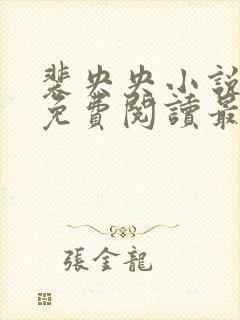 裴央央小說
免費閱讀最
張金龍